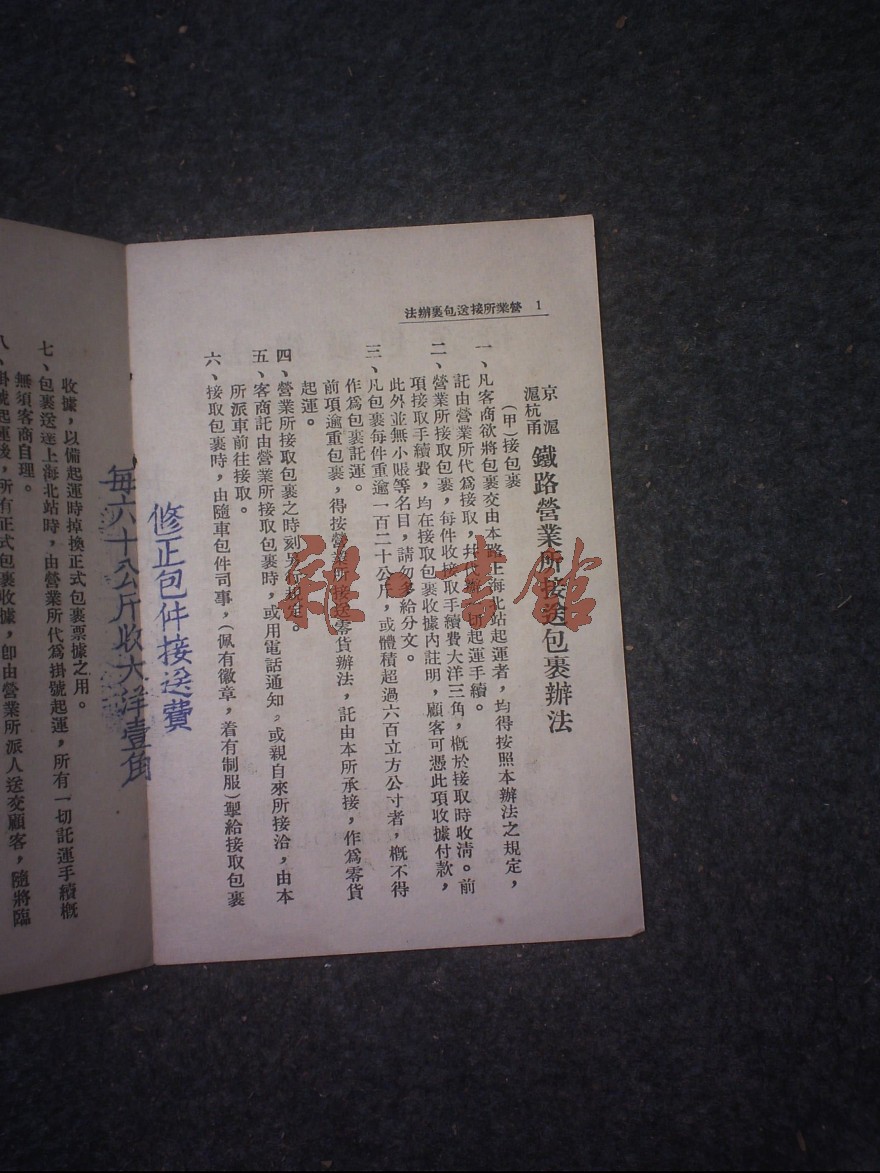 1 營業所接送包裹辦法
京滬
滬杭甬
鐵路營業所接送包裹辦法
(甲)接包裹
一、凡客商欲將包裹交由本路上海北站起運者，均得按照本辦法之規定，
託由營業所代爲接取，并代辦一切起運手續。
二、營業所接取包裹，每件收接取手續費大洋三角，概於接取時收清。前
項接取手續費，均在接取包裹收據內註明，顧客可憑此項收據付款，
此外並無小賬等名目，請勿多給分文。
三、凡包裹每件重逾一百二十公斤，或體積超過六百立方公寸者，概不得
作爲包裹託運。
前項逾重包裹，得按營業所接送零貨辦法，託由本所承接，作爲零貨
起運。
四、營業所接取包裹之時刻另行規定。
五、客商託由營業所接取包裹時，或用電話通知，或親自來所接洽，由本
所派車前往接取。
六、接取包裹時，由隨車包件司事，(佩有徽章，着有制服)掣給接取包裹
修正包件接送費
每六十公斤收大洋壹角
收據，以備起運時掉換正式包裹票據之用。
七、包裹送達上海北站時，由營業所代爲掛號起運，所有一切託運手續概
無須客商自理。
八、掛號起運後，所有正式包裹收據，卽由營業所派人送交顧客，隨將臨
雜·書館